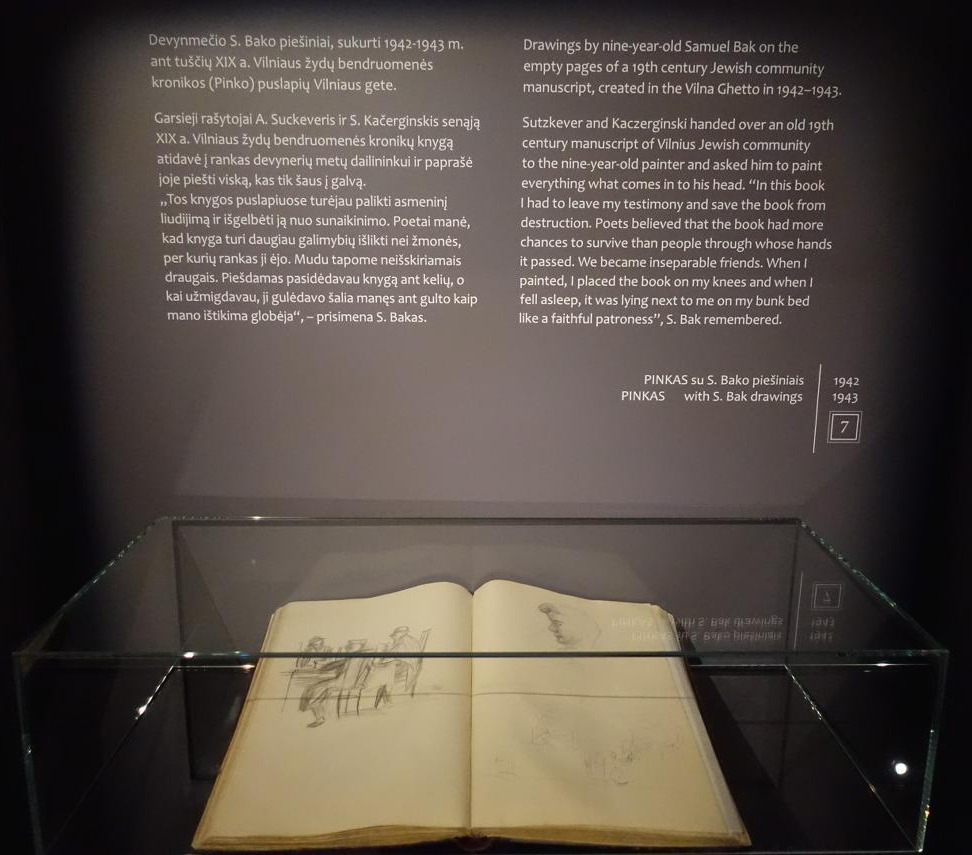 Devynmečio S. Bako piešiniai, sukurti 1942-1943 m.
ant tuščių XIX a. Vilniaus žydų bendruomenės
kronikos (Pinko) puslapių Vilniaus gete.
Garsieji rašytojai A. Suckeveris ir S. Kačerginskis senąją
XIX a. Vilniaus žydų bendruomenės kronikų knygą
atidavė į rankas devynerių metų dailininkui ir paprašė
joje piešti viską, kas tik šaus į galvą.
„Tos knygos puslapiuose turėjau palikti asmeninį
liudijimą ir išgelbėti ją nuo sunaikinimo. Poetai manė,
kad knyga turi daugiau galimybių išlikti nei žmonės,
per kurių rankas ji ėjo. Mudu tapome neišskiriamais
draugais. Piešdamas pasidėdavau knygą ant kelių, o
kai užmigdavau, ji gulėdavo šalia manęs ant gulto kaip
mano ištikima globėja“, – prisimena S. Bakas.
Drawings by nine-year-old Samuel Bak on the
empty pages of a 19th century Jewish community
manuscript, created in the Vilna Ghetto in 1942–1943.
Sutzkever and Kaczerginski handed over an old 19th
century manuscript of Vilnius Jewish community
to the nine-year-old painter and asked him to paint
everything what comes in to his head. “In this book
I had to leave my testimony and save the book from
destruction. Poets believed that the book had more
chances to survive than people through whose hands
it passed. We became inseparable friends. When I
painted, I placed the book on my knees and when I
fell asleep, it was lying next to me on my bunk bed
like a faithful patroness”, S. Bak remembered.
PINKAS su S. Bako piešiniais 1942
PINKAS with S. Bak drawings 1943
7